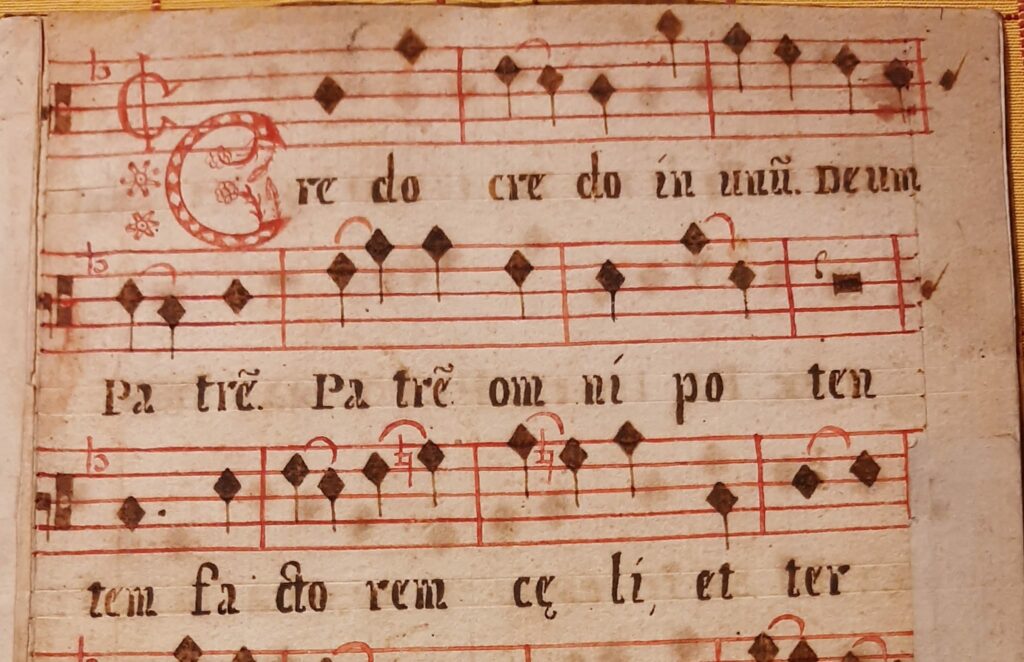 Cre do cre do in unũ. Deum
Pa trẽ. Pa trẽ om ni po ten
tem fa cto rem cę li, et ter